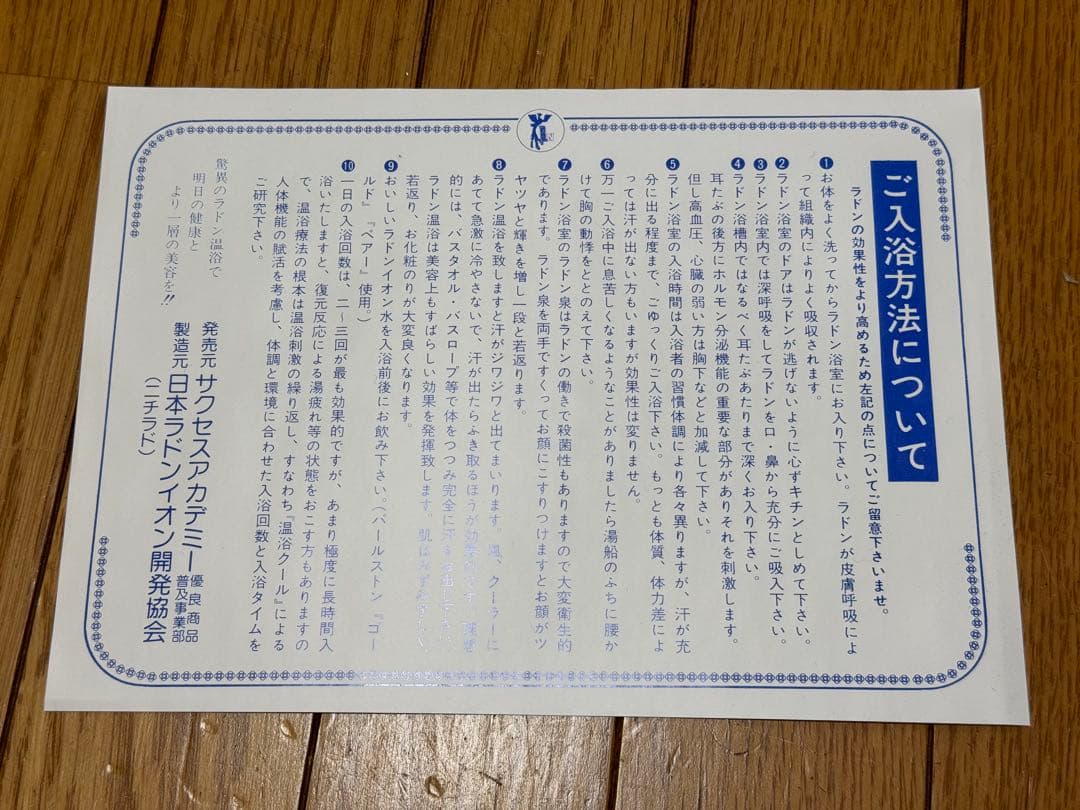 ご入浴方法について
ラドンの効果性をより高めるため左記の点についてご留意下さいませ。
❶お体をよく洗ってからラドン浴室にお入り下さい。ラドンが皮膚呼吸によ
って組織内によりよく吸収されます。
❷ラドン浴室のドアはラドンが逃げないように必ずキチンとしめて下さい。
❸ラドン浴室内では深呼吸をしてラドンを口・鼻から充分にご吸入下さい。
❹ラドン浴槽内ではなるべく耳たぶあたりまで深くお入り下さい。
耳たぶの後方にホルモン分泌機能の重要な部分がありそれを刺激します。
但し高血圧、心臓の弱い方は胸下などと加減して下さい。
❺ラドン浴室の入浴時間は入浴者の習慣体調により各々異りますが、汗が充
分に出る程度まで、ごゆっくりご入浴下さい。もっとも体質、体力差によ
っては汗が出ない方もいますが効果性は変りません。
❻万一ご入浴中に息苦しくなるようなことがありましたら湯船のふちに腰か
けて胸の動悸をととのえて下さい。
❼ラドン浴室のラドン泉はラドンの働きで殺菌性もありますので大変衛生的
であります。ラドン泉を両手ですくってお顔にこすりつけますとお顔がツ
ヤツヤと輝きを増し一段と若返ります。
❽ラドン温浴を致しますと汗がジワジワと出てまいります。風、クーラーに
あてて急激に冷やさないで、汗が出たらふき取るほうが効果的です。理想
的には、バスタオル・バスローブ等で体をつつみ完全に汗を
ラドン温浴は美容上もすばらしい効果を発揮致します。肌は
若返り、お化粧のりが大変良くなります。
❾おいしいラドンイオン水を入浴前後にお飲み下さい。(パールストン『ゴー
ルド』『ペアー』使用。)
❿一日の入浴回数は、二～三回が最も効果的ですが、あまり極度に長時間入
浴いたしますと、復元反応による湯疲れ等の状態をおこす方もありますの
で、温浴療法の根本は温浴刺激の繰り返し、すなわち『温浴クール』による
人体機能の賦活を考慮し、体調と環境に合わせた入浴回数と入浴タイムを
ご研究下さい。
驚異のラドン温浴で
明日の健康と
より一層の美容を!!
発売元 サクセスアカデミー 優良商品普及事業部
製造元 日本ラドンイオン開発協会
(ニチラド)